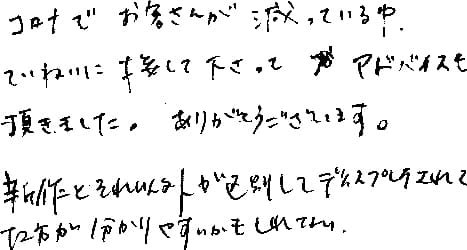 コロナで お客さんが 減っている中.
ていねいに 接して 下さって アドバイスも
頂きました。 ありがとうございます。
新作とそれ以外が区別してディスプレイされて
た方が 分かりやすいかもしれない.